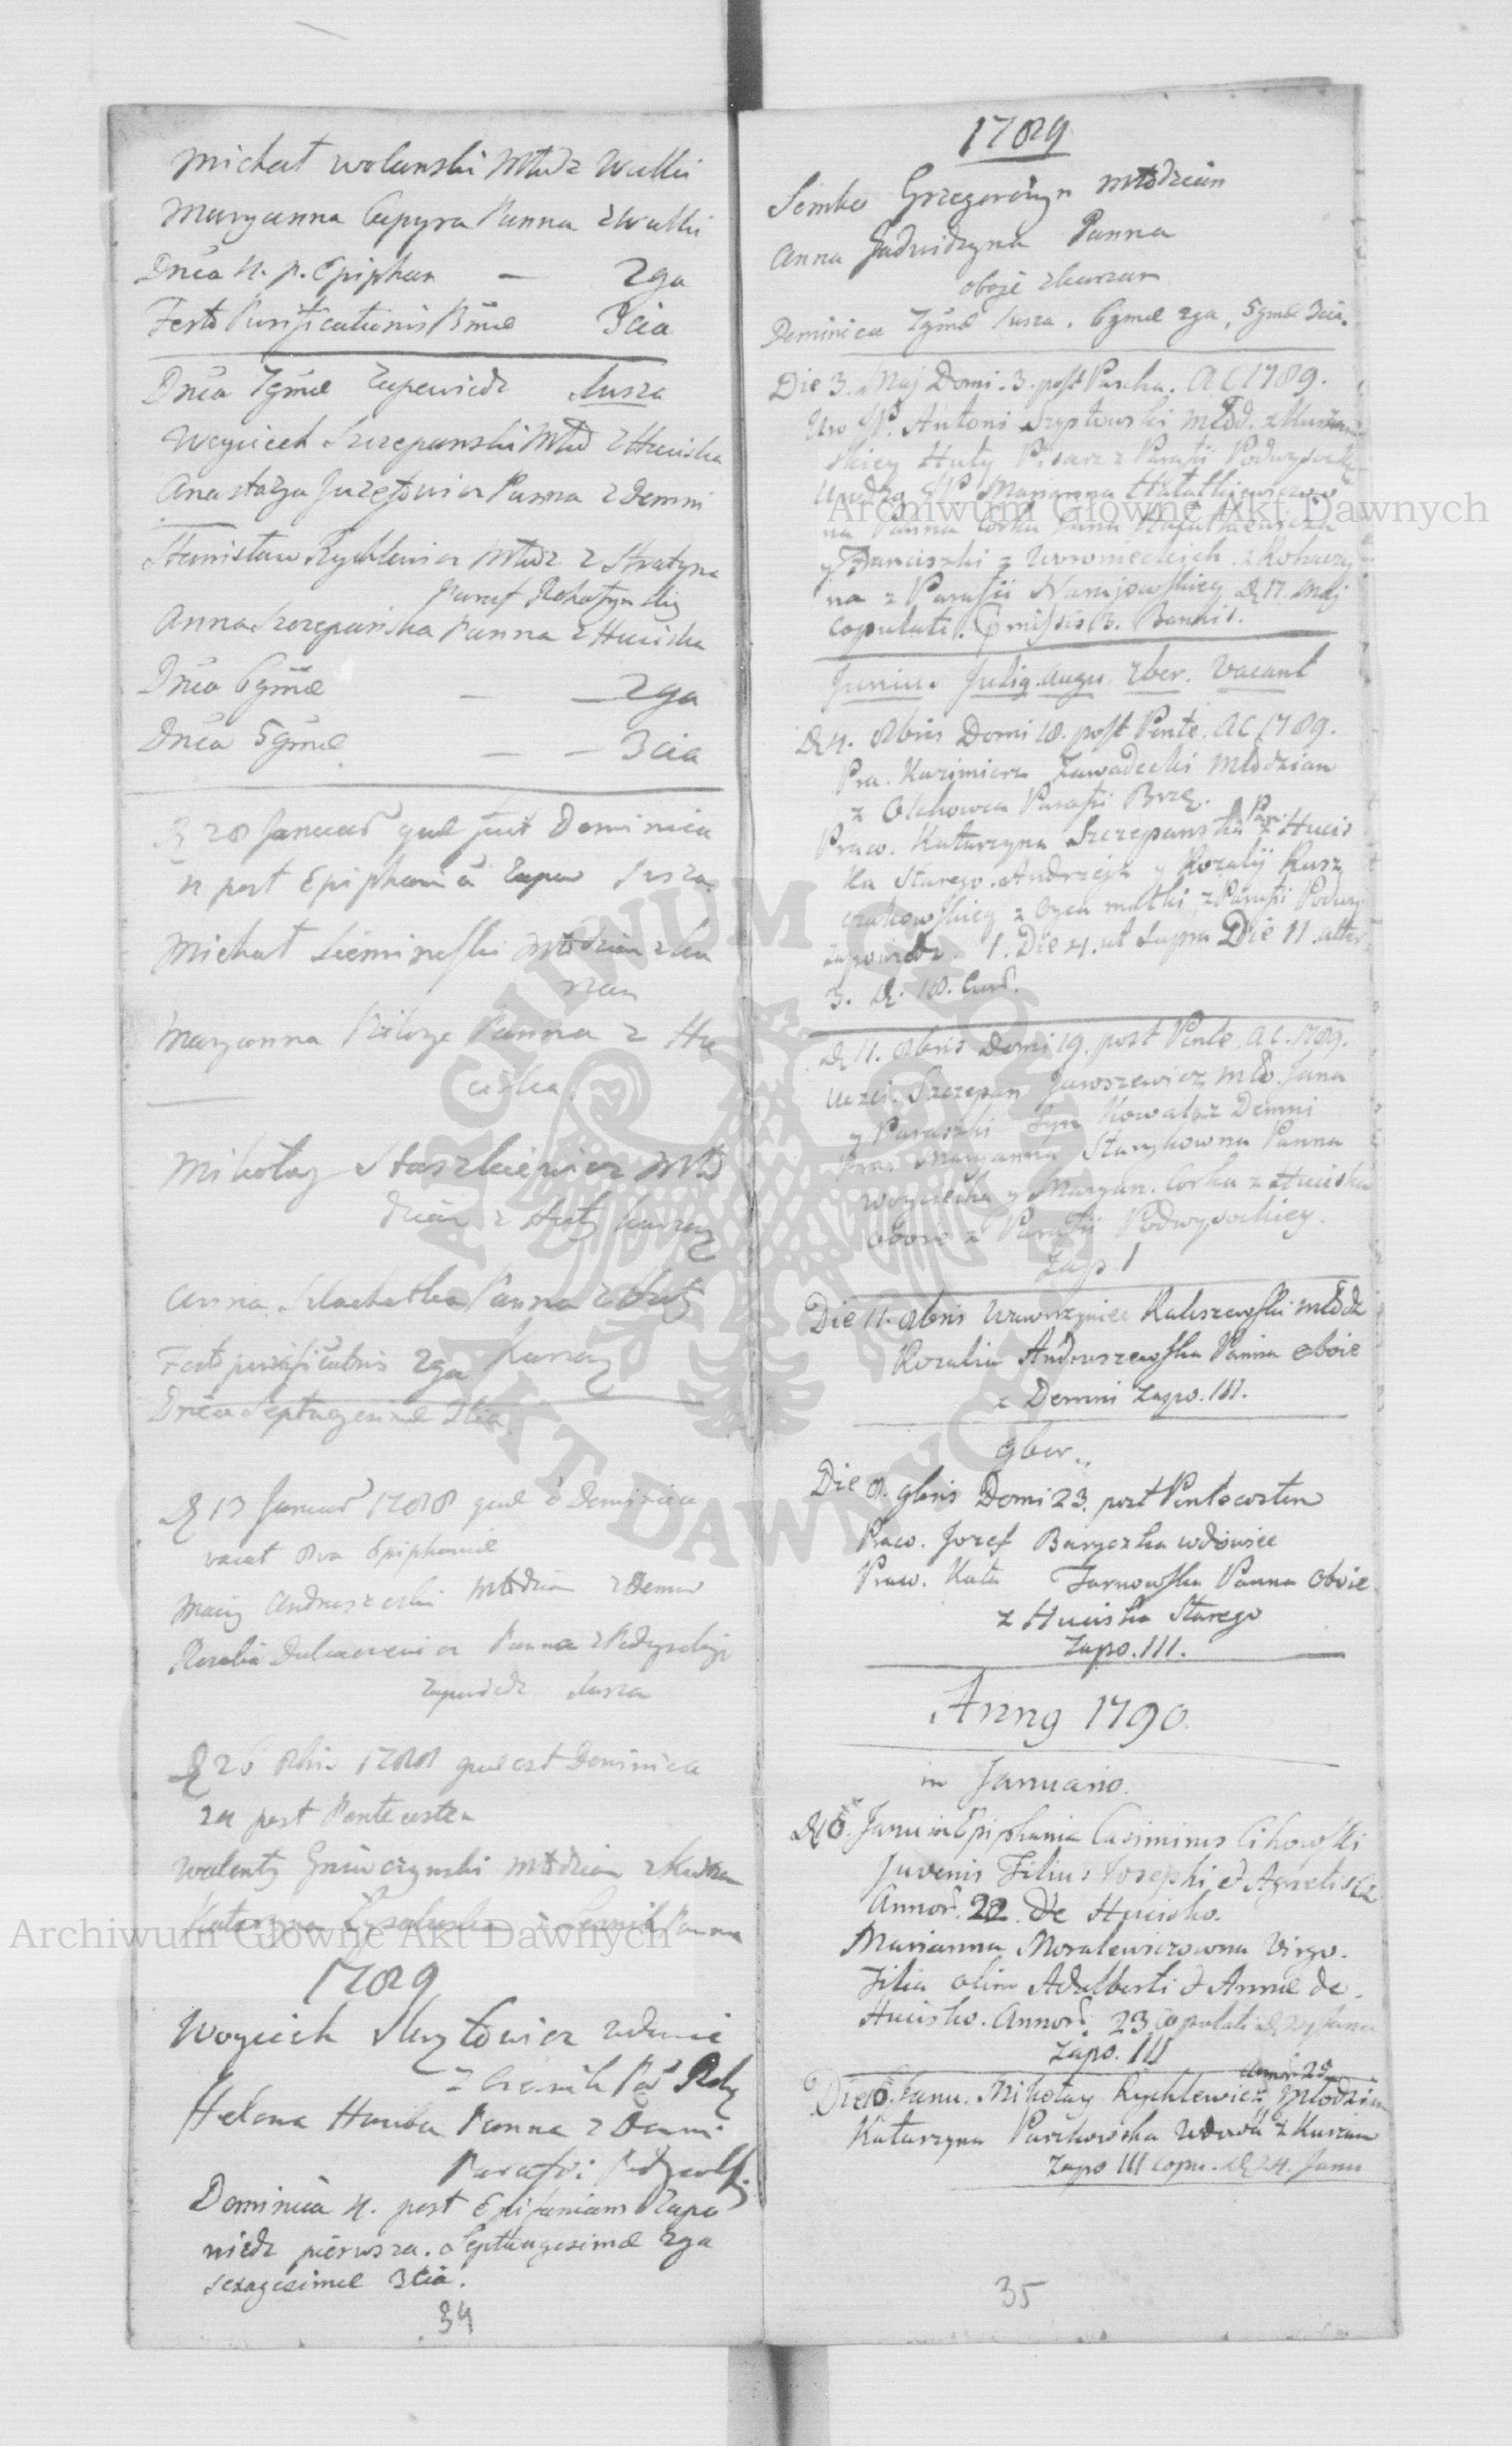 Michał Wolanski Młdz Wulki
Maryanna Capyra Panna z Wulki
Dnca 4. p. Epiphan — 2ga
Festo Purificationis BMae 3cia
Dnca 7gmae Zapowiedz 1usza
Woyciech Szczepanski Młd z Huciska
Anastazya Juzefowicz Panna z Demni
Stanisław Rychlewicz Młdz z Stratyna
Paraf Rohatynskiey
Anna Szczepanska Panna z Huciska
Dnca 6gmae — — 2ga
Dnca 5gmae — — 3cia
28 Januar quae fuit Dominica
4 post Epiphania Zapow 1usza
Michał Sieminski Młodzian z Ku
rzan
Maryanna Panna z Hu
ciska
Mikołay Staszkiewicz Mło
dzian z Huty Kurzan
Anna Szlachetka Panna z Huty
Festo purificationis 2ga Kurzan
Dnca Septuagesimae 3tia
D 13 Januar 1788 quae e Dominica
vacat 8va Epiphaniae
Maciey Andruszeski Młodzian z Demni
Rozalia Panna z Podwysokiego
Zapowiedz 1usza
D 26 8bris 1788 quae est Dominica
24 post Pentecosten
Walenty młodzian z Kurzan
Katarzyna Panna
1789
Woyciech wdowiec
z
Helena Panna z Demni
Parafii
Dominica 4. post Epifaniam Zapo
wiedz pierwsza. Septuagesimae 2ga
sexagesimae 3cia.
34
1789
Semko Grzegorczyn Młodzian
Anna Jadwidzyna Panna
oboje z Kurzan
Dominica 7gmae 1usza. 6gmae 2ga, 5gmae 3cia.
Die 3. Maj Domi. 3. post Pascha. A C 1789.
Uro JP. Antoni Szystowski Młod. z Kurzan
skiey Huty Pisarz z Parafii Podwysockiey
Urodzo JP Marianna Hałatkiewiczow
na Panna Corka Jana Hałatkiewicza
y Franciszki z Woronieckich z Rohaczy
na z Parafii Narajowskiey D 17. Maj
copulati. Omissis B. Bannis.
Junius Julig. Augu. 7ber. Vacant
D 4. 8bris Domi 18. post Pente. A C 1789.
Pra. Kazimierz Zawadecki Młodzian
z Olchowca Parafii Brze.
Praw. Katarzyna Szczepanska Pan. z Hucis
ka Starego. Andrzeja y Rozalij Kusz
czakowskiey z Oyca matki z Parafii Podwy
zapowiedz. 1. Die 4. ut supra Die 11. alter
3. D. 18. Curr.
D 11. 8bris Domi 19. post Pente. A C. 1789.
Uczci. Szczepan Jawszewicz Mło. Jana
y Paraszki Syn Kowal z Demni
Prac Maryanna Starykowna Panna
Woyciecha y Maryan. Corka z Huciska
oboie z Parafii Podwysockiey.
Zap. 1
Die 11. 8bris Wawrzyniec Kaliszewski Młodz
Rozalia Andruszewska Panna oboie
z Demni Zapo. III.
9ber.
Die 8. 9bris Domi 23. post Pentecosten
Praco. Jozef Baryczka wdowiec
Praw. Kata Tarnowska Panna oboie
z Huciska Starego
Zapo. III.
Anno 1790.
in Januario.
D 6. Janu in Epiphania Casimirus Cihowski
Juvenis Filius Josephi et Agnetis
Annor. 22. De Hucisko.
Marianna Moralewiczowna Virgo.
Filia olim Adalberti et Annae de
Hucisko. Annor. 23 Copulati D 24 Janu
Zapo. III
Annor 25
Die 6. Janu. Mikołay Rychlewicz, Młodzian
Katarzyna Paszkowska Wdowa z Kurzan
Zapo III Copu. D 24. Janu
35
Archiwum Główne Akt Dawnych
Archiwum Główne Akt Dawnych
ARCHIWUM GŁÓWNE AKT DAWNYCH